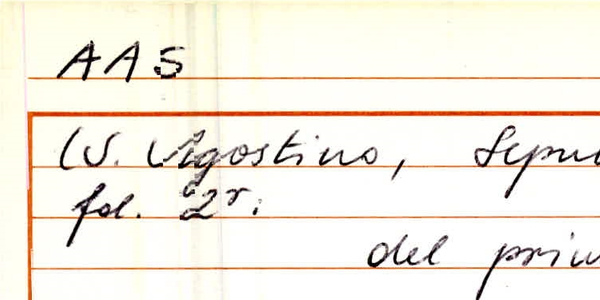 AAS
(S. Agostino, Sepu
fol. 2r.
del prim